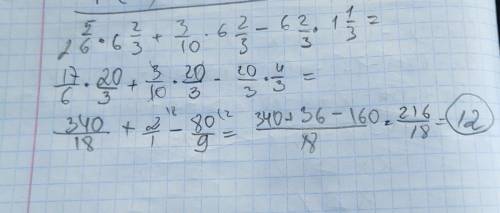 2 5/6 · 6 2/3 + 3/10 · 6 2/3 - 6 2/3 · 1 1/3 =
17/6 · 20/3 + 3/10 · 20/3 - 20/3 · 4/3 =
340/18 + 2/1 - 80/9 = (340 + 36 - 160)/18 = 216/18 = 12